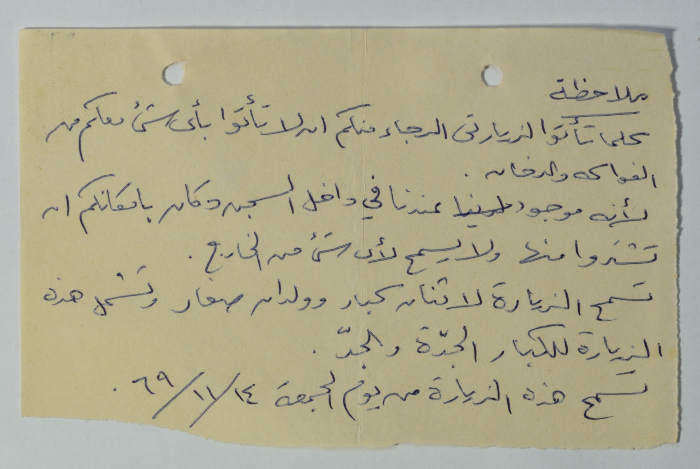 ملاحظة
كلما تأتوا لزيارتي الرجاء منكم ان لا تأتوا بأي شئ معكم من
الفواكه والدخان .
لأنه موجود عندنا في داخل السجن دكان بامكانكم ان
تشتروا منها ولا يسمح لأي شئ من الخارج .
تسمح الزيارة لاثنان كبار وولدان صغار وتشمل هذه
الزيارة للكبار الجدّة والجدّ .
تسمح هذه الزيارة من يوم الجمعة ١٤ / ١١ / ٦٩ .